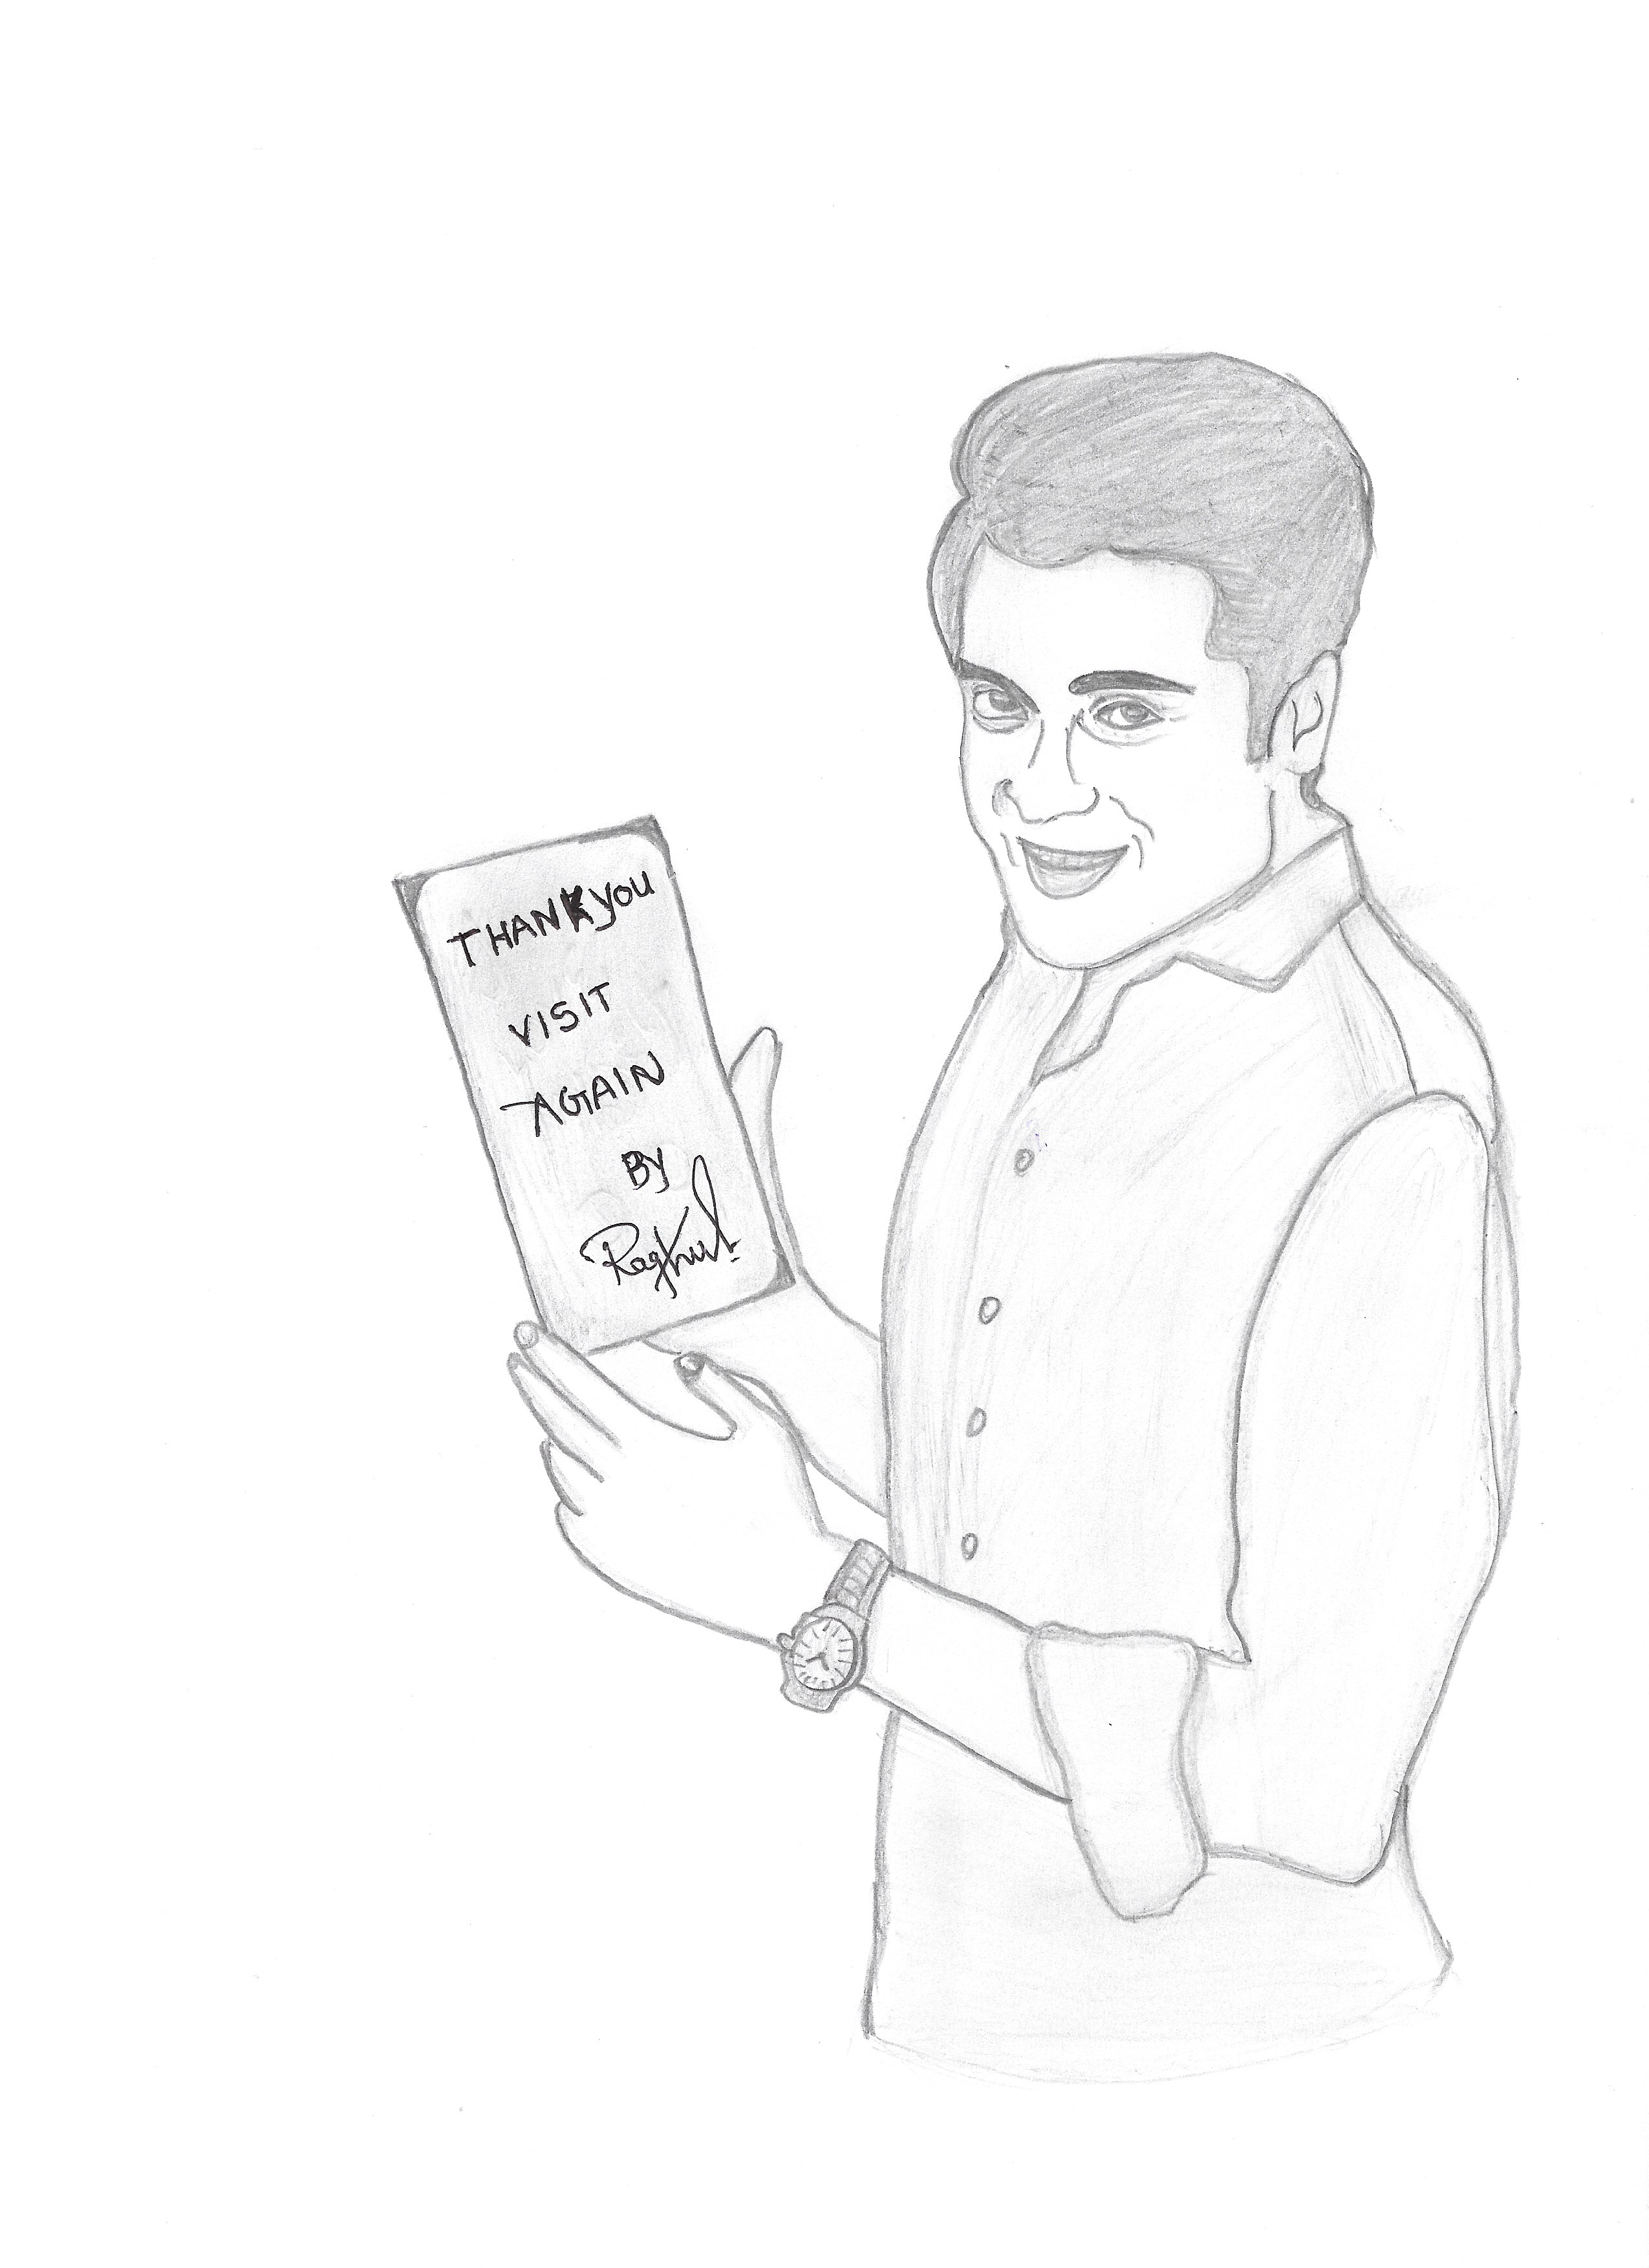 THANK YOU
VISIT
AGAIN
BY
Raghul